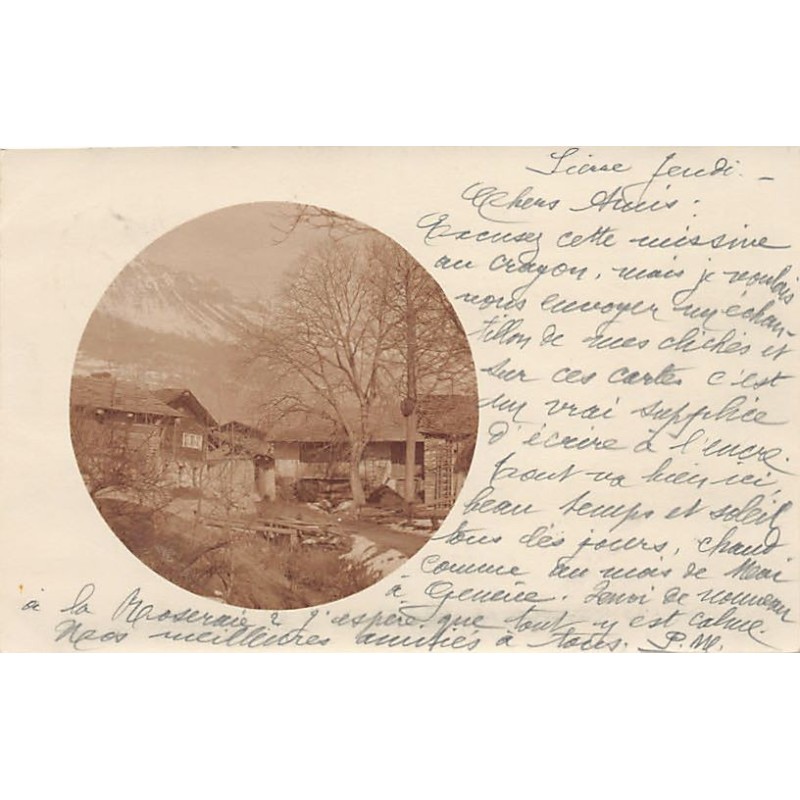 Sierre Jeudi. -
Chers Amis:
Excusez cette missive
au crayon, mais je voulais
vous envoyer un échan-
tillon de mes clichés et
sur ces cartes c'est
un vrai supplice
d'écrire à l'encre.
Tout va bien ici,
beau temps et soleil
tous les jours, chaud
comme au mois de Mai
à Genève. de nouveau
à la Roseraie? J'espère que tout y est calme.
Nos meilleures amitiés à tous. P.M.